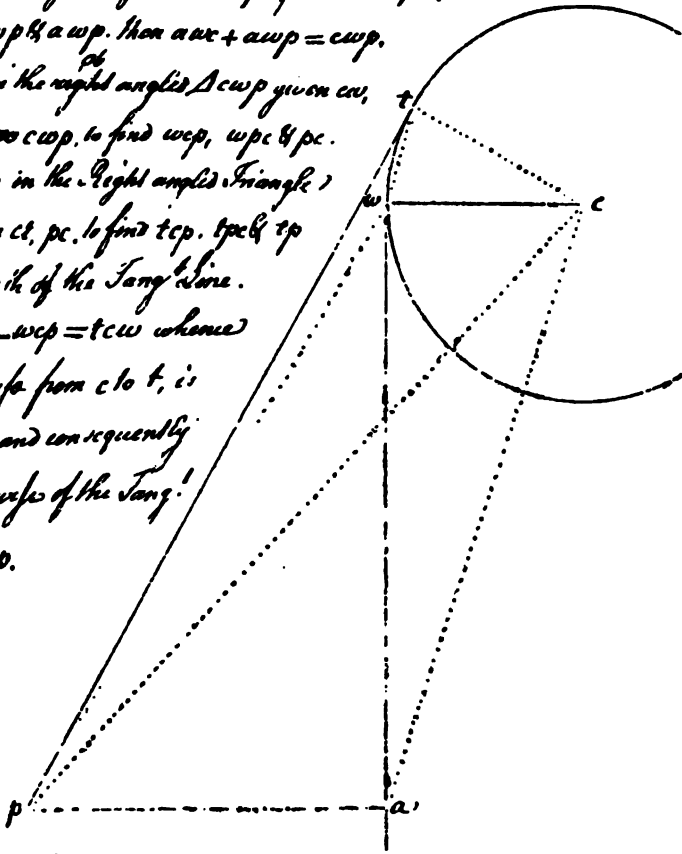 wp & awp. then awc + awp = cwp.
the right angled Δ cwp given cw,
ob
cwp, to find wcp, wpc & pc.
in the Right angled Triangle
ct, pc, to find tcp. tpc & tp
of the Tangt Line.
wcp = tcw whence
from c to t, is
and consequently
of the Tangt
p.
t
w
c
p
a